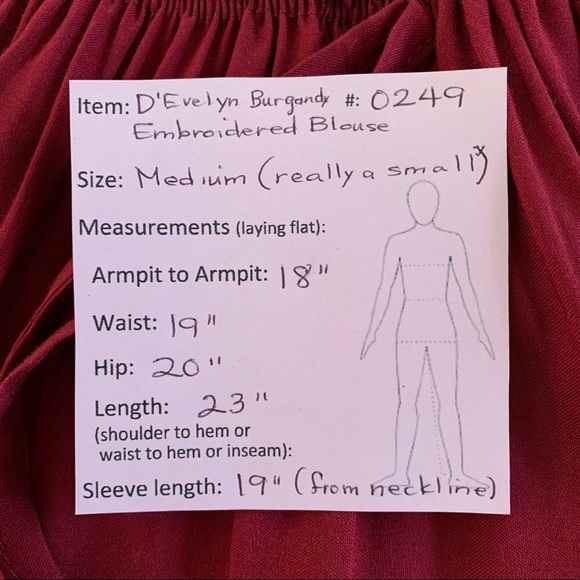 Item: D'Evelyn Burgandy #: 0249
Embroidered Blouse
Size: Medium (really a small*)
Measurements (laying flat):
Armpit to Armpit: 18"
Waist: 19"
Hip: 20"
Length: 23"
(shoulder to hem or
waist to hem or inseam):
Sleeve length: 19" (from neckline)